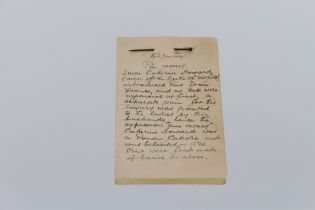 16th Century
Pin money.
Queen Catherine Howard
Queen of the Duke of Norfolk
introduced Pins from
France, and as these were
expensive at first, a
separate sum for this
luxury was granted
to the ladies by their
husbands, hence the
expression "Pin money"
Catherine Howard was
a Roman Catholic and
was beheaded in 1542
Pins were first made
of